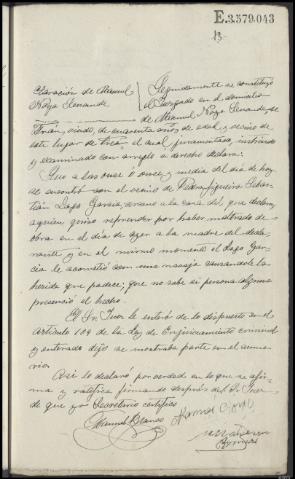 E.3.579.043
13
Declaración de Manuel
Noya Senande
Seguidamente se constituyó
el Juzgado en el domicilio
de Manuel Noya Senande, de
viudo, de cuarenta años de edad, y vecino de
este lugar de el cual juramentado, instruido
y examinado con arreglo a derecho declara:
Que a las once y media del día de hoy
se encontró con el vecino de Figueira Sebas-
tián Lago García, cerca a la casa del que declara,
a quien quiso reprender por haber maltratado de
obra en el día de ayer a la madre del decla-
rante y en el mismo momento el Lago Gar-
cía le acometió con una navaja causándole la
herida que padece; que no sabe si persona alguna
presenció el hecho.
El Sr Juez le enteró de lo dispuesto en el
artículo 109 de la Ley de Enjuiciamiento criminal
y enterado dijo se mostraba parte en el suma-
rio.
Así lo declaró por verdad en lo que se afir-
ma y ratifica firmando después del Sr Juez
de que yo Secretario certifico
Manuel Blanco Manuel